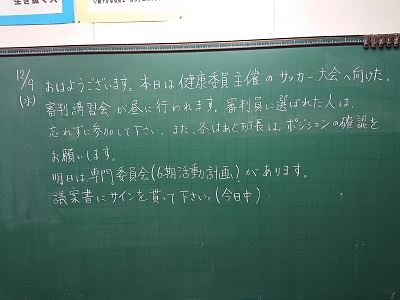 12/9
(水)
おはようございます。本日は健康委員主催のサッカー大会へ向けた、
審判講習会が昼に行われます。審判員に選ばれた人は、
忘れずに参加して下さい。また、各はあと班長は、ポジションの確認を
お願いします。
明日は専門委員会(6期活動計画)があります。
議案書にサインを貰って下さい。(今日中)